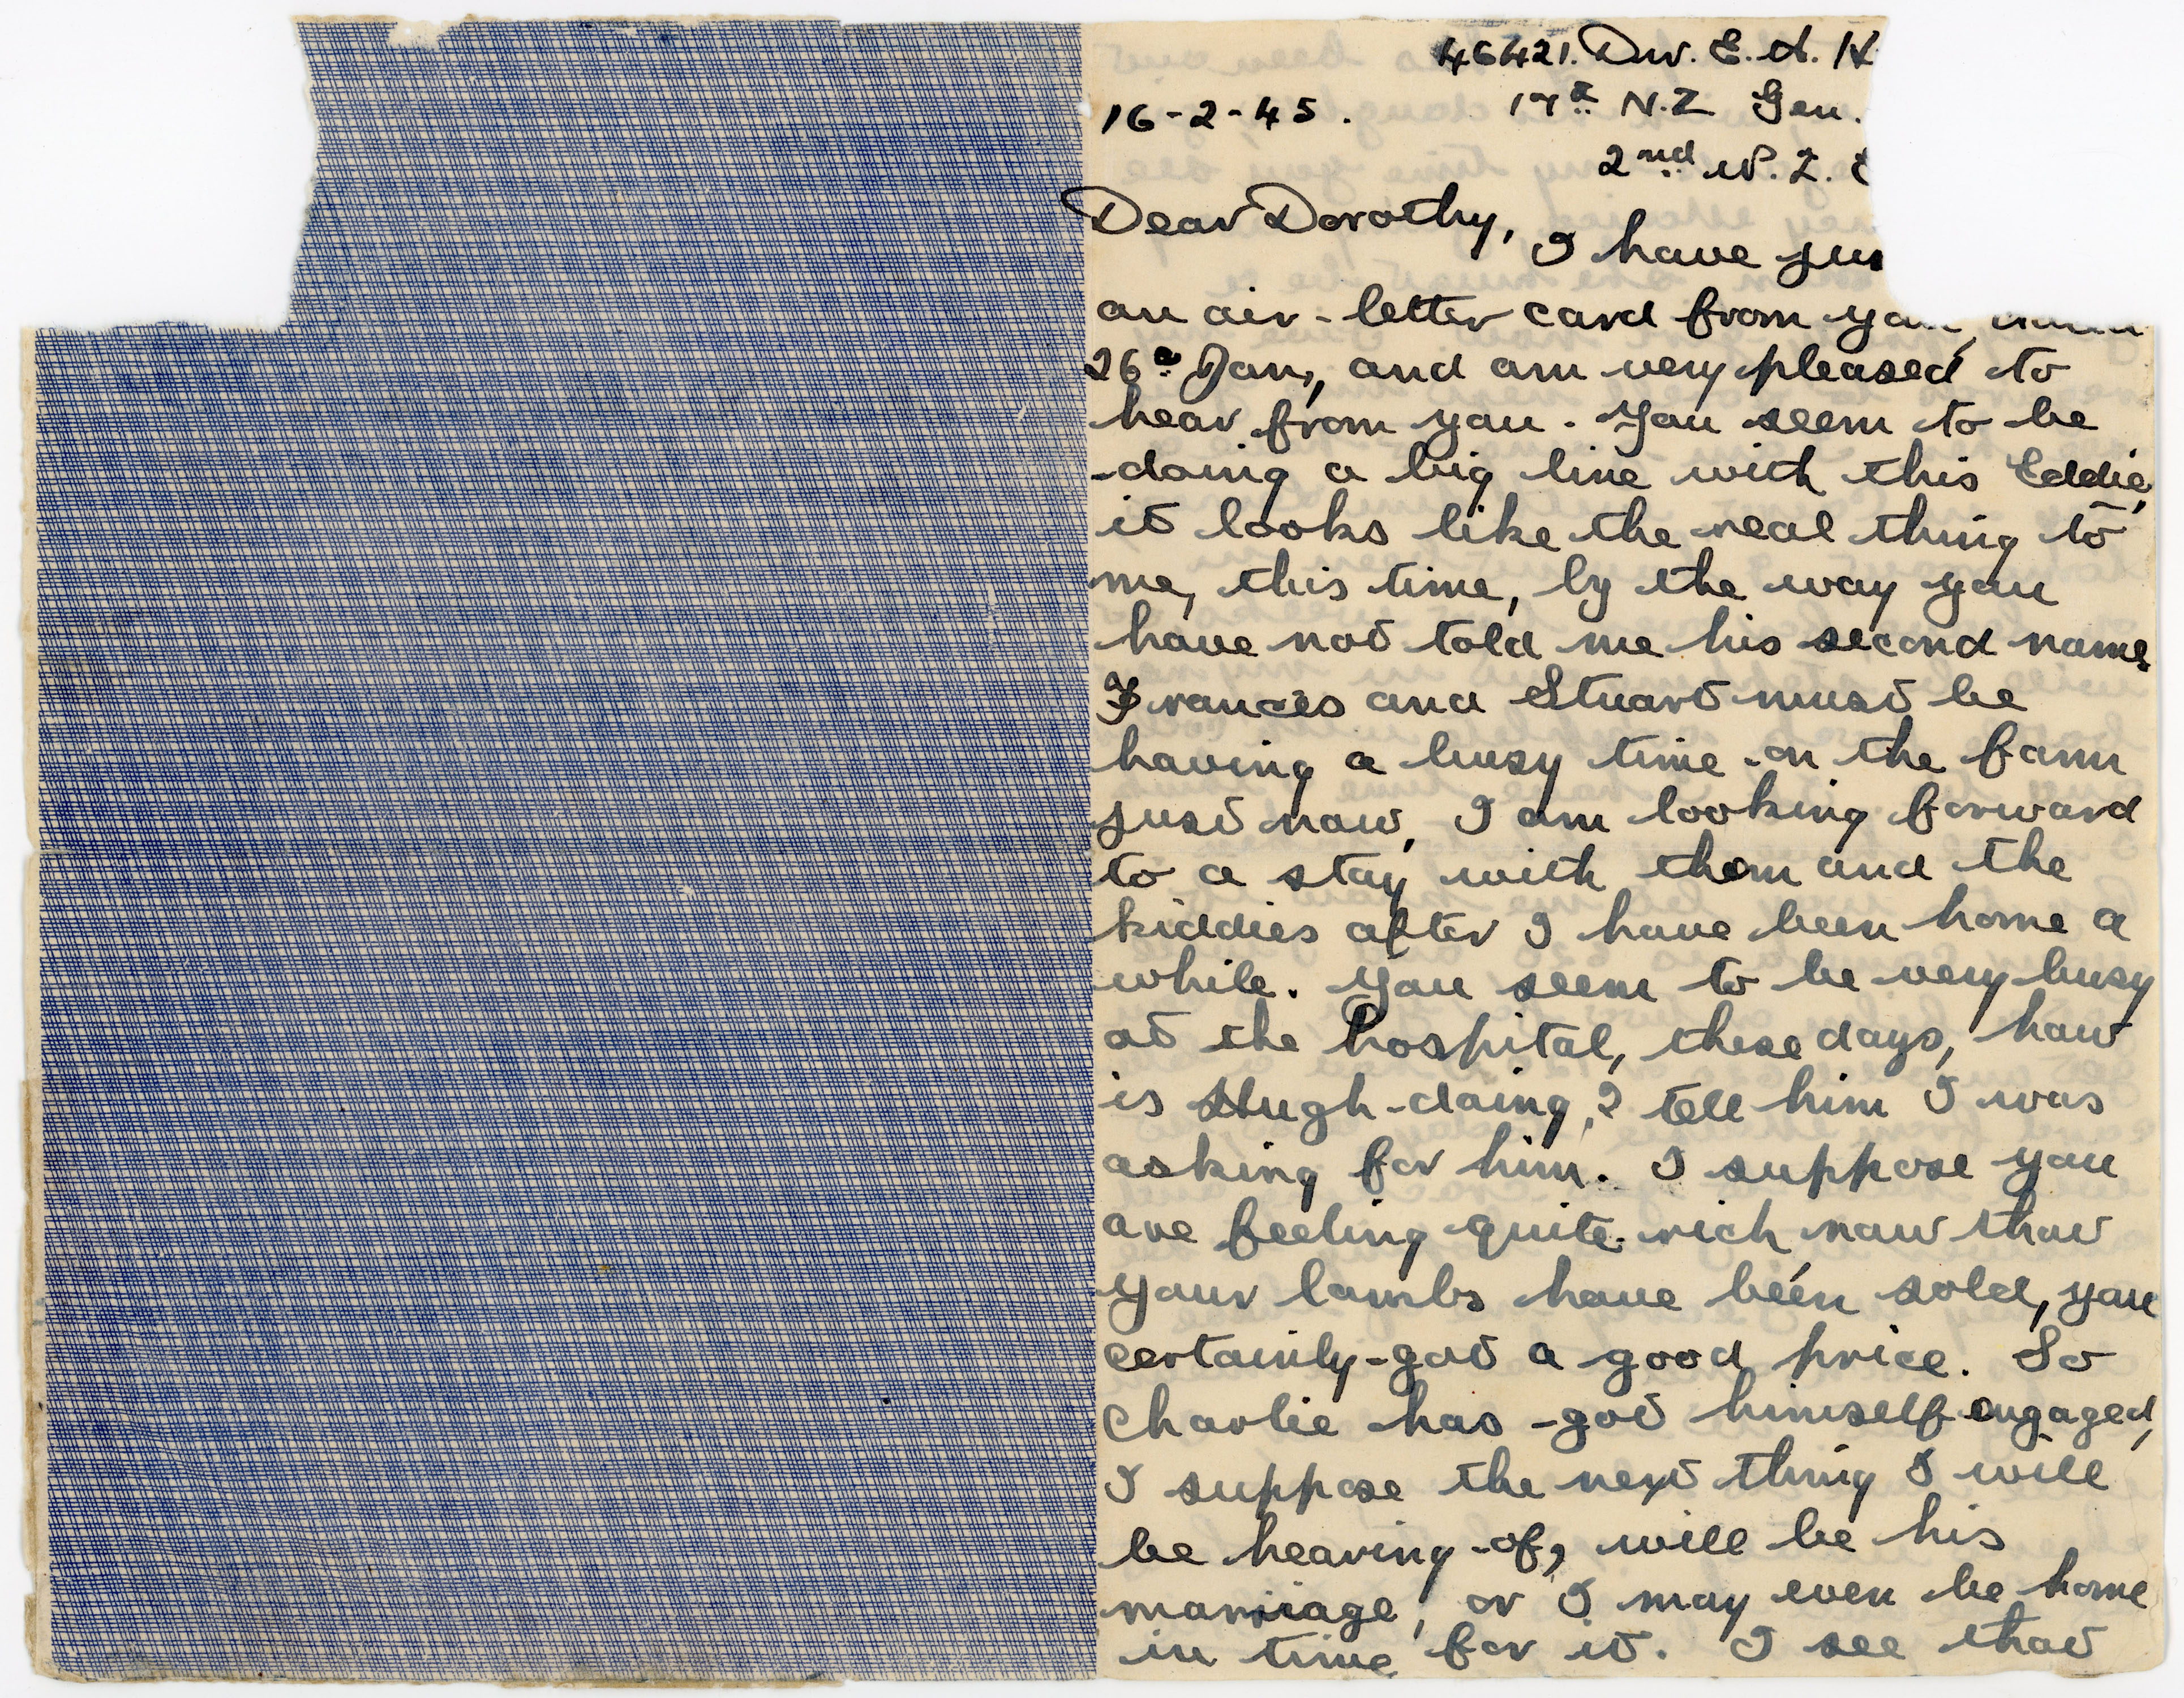 46421. Dvr. E. A.
16-2-45. 17th N.Z Gen.
2nd N.Z.
Dear Dorothy,
I have
an air-letter card from you,
26th Jan, and am very pleased to
hear from you. You seem to be
doing a big line with this Eddie,
it looks like the real thing to
me, this time, by the way you
have not told me his second name,
Frances and Stuart must be
having a busy time on the farm
just now, I am looking forward
to a stay with them and the
kiddies after I have been home a
while. You seem to be very busy
at the hospital, these days, how
is Hugh doing,? tell him I was
asking for him. I suppose you
are feeling quite rich now that
your lambs have been sold, you
certainly got a good price. So
Charlie has got himself engaged,
I suppose the next thing I will
be hearing of, will be his
marriage, or I may even be home
in time for it. I see that